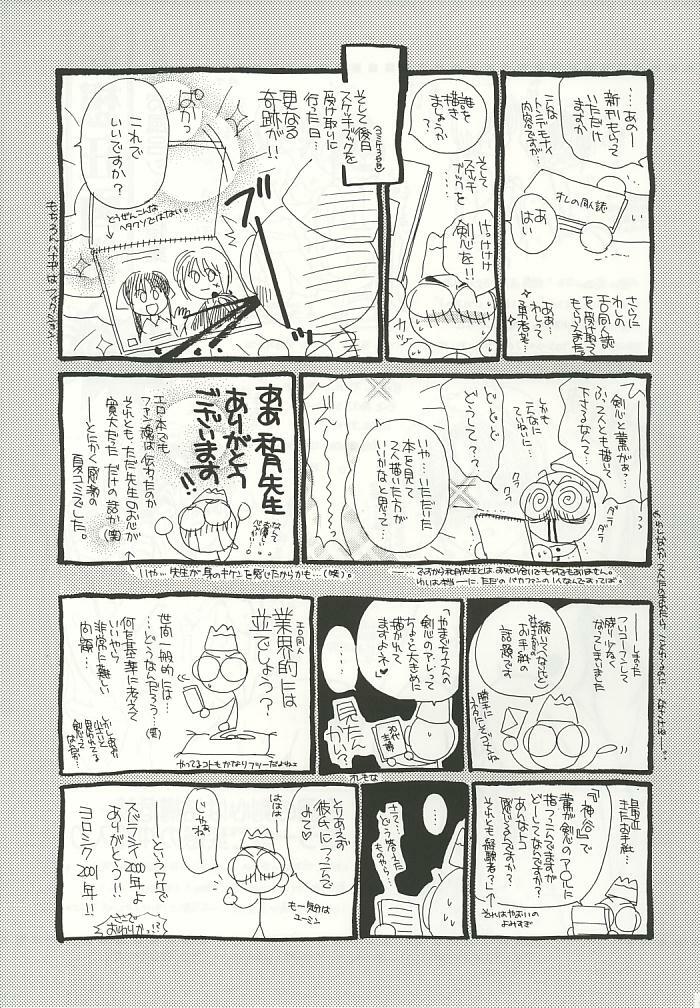 ……あのー
新刊もらって
いただけ
ますか
こんな
トンデモナイ
内容ですが…
オレの同人誌
あ
はい
さらに
わしの
エロ同人誌
を受け取って
もらえました。
ああ…
わしって
勇者だ…
誰を
描き
ましょうか
？
そして
スケッチ
ブックを…
けっけけ
剣心を!!
カッ
そして後日
スケッチブックを
受け取りに
行った日…
更なる
奇跡が!!
ぱかっ
これで
いいですか？
どうぜんこんな
ヘタクソではない。
もちろんハナヂはフィクション…
剣心と薫がぁっ…
ふっ2人とも描いて
下さるなんて…
しかも
こんなに
ていねいに
どどど
どうして？？
いや…いただいた
本を見て
2人描いた方が
いいかなと思って…
クラ
クラ
ダラ
ダラ
ああ 和月先生
ありがとう
ございます!!
なんて
お優しい
エロ本でも
フキン魂は伝わったのか
それとも、ただ先生のお心が
寛大だっただけの話か(笑)
——とにかく感激の
夏コミでした。
いや…先生が身のキケンを感じたからかも…(笑)。
——…ですから和月先生とは、お知り合いでも何でもありません。
わしは本当——に、ただのバカファンの1人なんですってば。
——しまった
フリコーフンして
残り少なく
なってしまいました
続いて(なんだと)
お手紙の
話題です
勝手に
ネタにしてゴメンよ
「やまぐちさんの
剣心のアレって
ちょっと大きめに
描かれて
ますよネ♥」
……
見たん
かい？
オレもな
業界的には
エロ同人
並でしょう？
世間一般的には…
…どうなんだろう？…(笑)
何を基準に考えて
いいやら
非常に難しい
問題…
やってるコトもかなりフツーだよねェ
最近
きたお手紙…
「『神谷』で
薫が剣心のア○ルに
指つっこんでますが
どーしてなんですか？
あんなトコ
感じるんですか？
それとも経験者？」
それはやおいの
よみすぎ
……
さて…
どう答えた
ものやら…
とりあえず
彼氏につっこんで
みて♥
ははは—
じゃねー
も一気分は
ユーミン
——というワケで
スバラシイ2000年よ
ありがとう!!
ヨロシク2001年!!
さて
おわりかっ!?